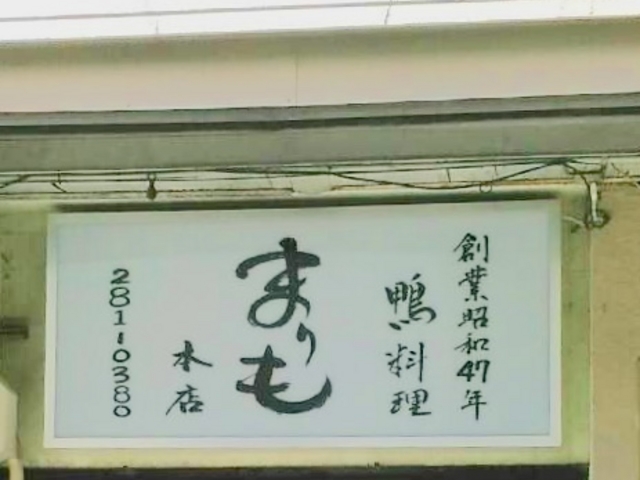 創業昭和47年
鴨料理
まりも
本店
281-0380